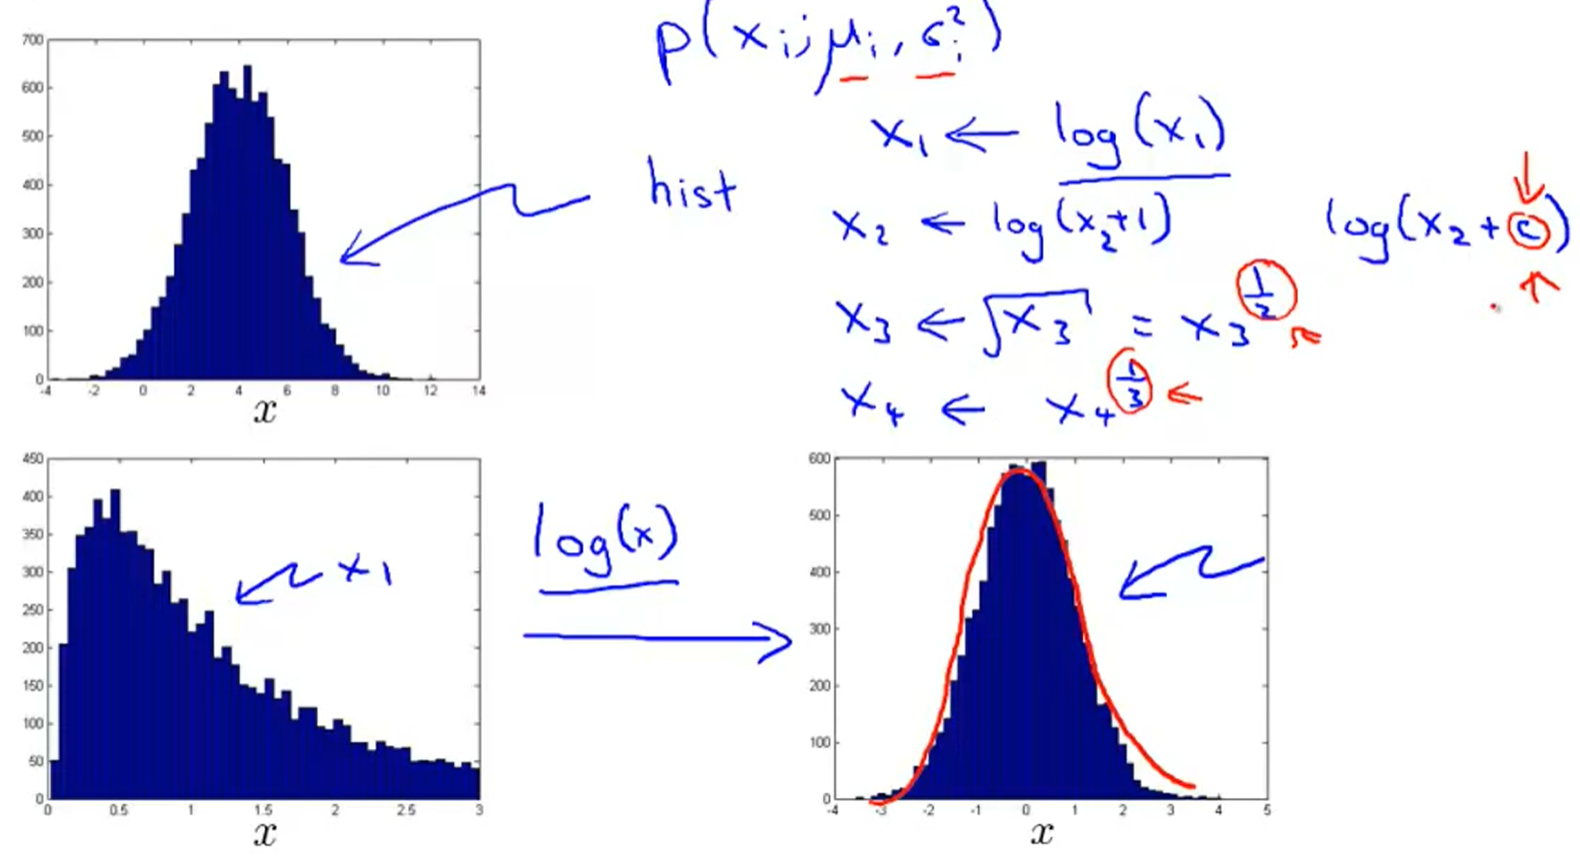 p(xᵢ; μᵢ, σᵢ²)
700
600
500
400
300
200
100
0
-4 -2 0 2 4 6 8 10 12 14
x
hist
x₁ ← log(x₁)
x₂ ← log(x₂+1) log(x₂ + c)
x₃ ← √x₃ = x₃^(1/2)
x₄ ← x₄^(1/3)
450
400
350
300
250
200
150
100
50
0
0 0.5 1 1.5 2 2.5 3
x
x₁
log(x)
600
500
400
300
200
100
0
-4 -3 -2 -1 0 1 2 3 4 5
x